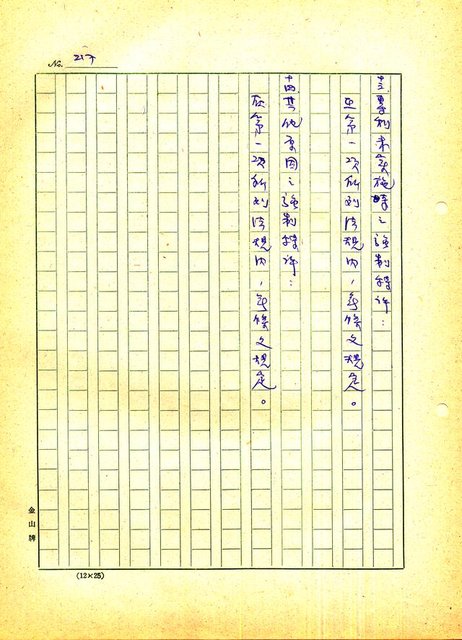 No. 217
十三專利未實施時之強制特許：
在第一次所列法規內，無條文規定。
十四其他原因之強制特許：
在第一次所列法規內，無條文規定。
金山牌
(12×25)